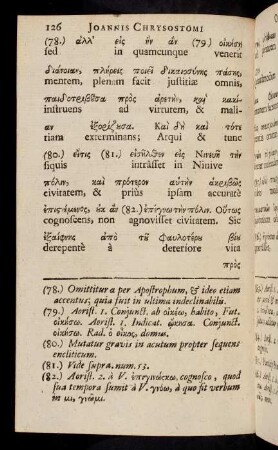 126 JOANNIS CHRYSOSTOMI
(78.) ἀλλ' εἰς ἣν ἂν (79) οἰκήσῃ
sed in quamcunque venerit
διάνοιαν, πλήρεις ποιεῖ δικαιοσύνης πάσης,
mentem, plenam facit justitiæ omnis,
παιδοτριβοῦσα πρὸς ἀρετὴν, καὶ κακί-
instruens ad virtutem, & mali-
αν ἐξορίζουσα. Καὶ δὴ καὶ τότε
tiam exterminans; Atqui & tunc
(80.) εἴτις (81.) εἰσῆλθεν εἰς Νινευῒ τὴν
siquis intrâsset in Ninive
πόλιν, καὶ πρότερον αὐτὴν ἀκριβῶς
civitatem, & prius ipsam accuratè
ἐπιστάμενος, ἐκ ἂν (82.) ἐπέγνω τὴν πόλιν. Οὕτως
cognoscens, non agnovisset civitatem. Sic
ἐξαίφνης ἀπὸ τοῦ φαυλοτέρου βίου
derepentè à deteriore vita
πρὸς
(78.) Omittitur a per Apostrophum, & ideo etiam
accentus, quia fuit in ultima indeclinabilis.
(79.) Aorist. 1. Conjunct. ab οἰκέω, habito, Fut.
οἰκήσω. Aorist. 1. Indicat. ᾤκησα. Conjunct.
οἰκήσω. Rad. ὁ οἶκος, domus.
(80.) Mutatur gravis in acutum propter sequens
encliticum.
(81.) Vide supra. num. 53.
(82.) Aorist. 2. à V. ἐπιγινώσκω, cognosco, quod
sua tempora sumit à V. γνόω, à quo fit verbum
in μι, γνῶμι.